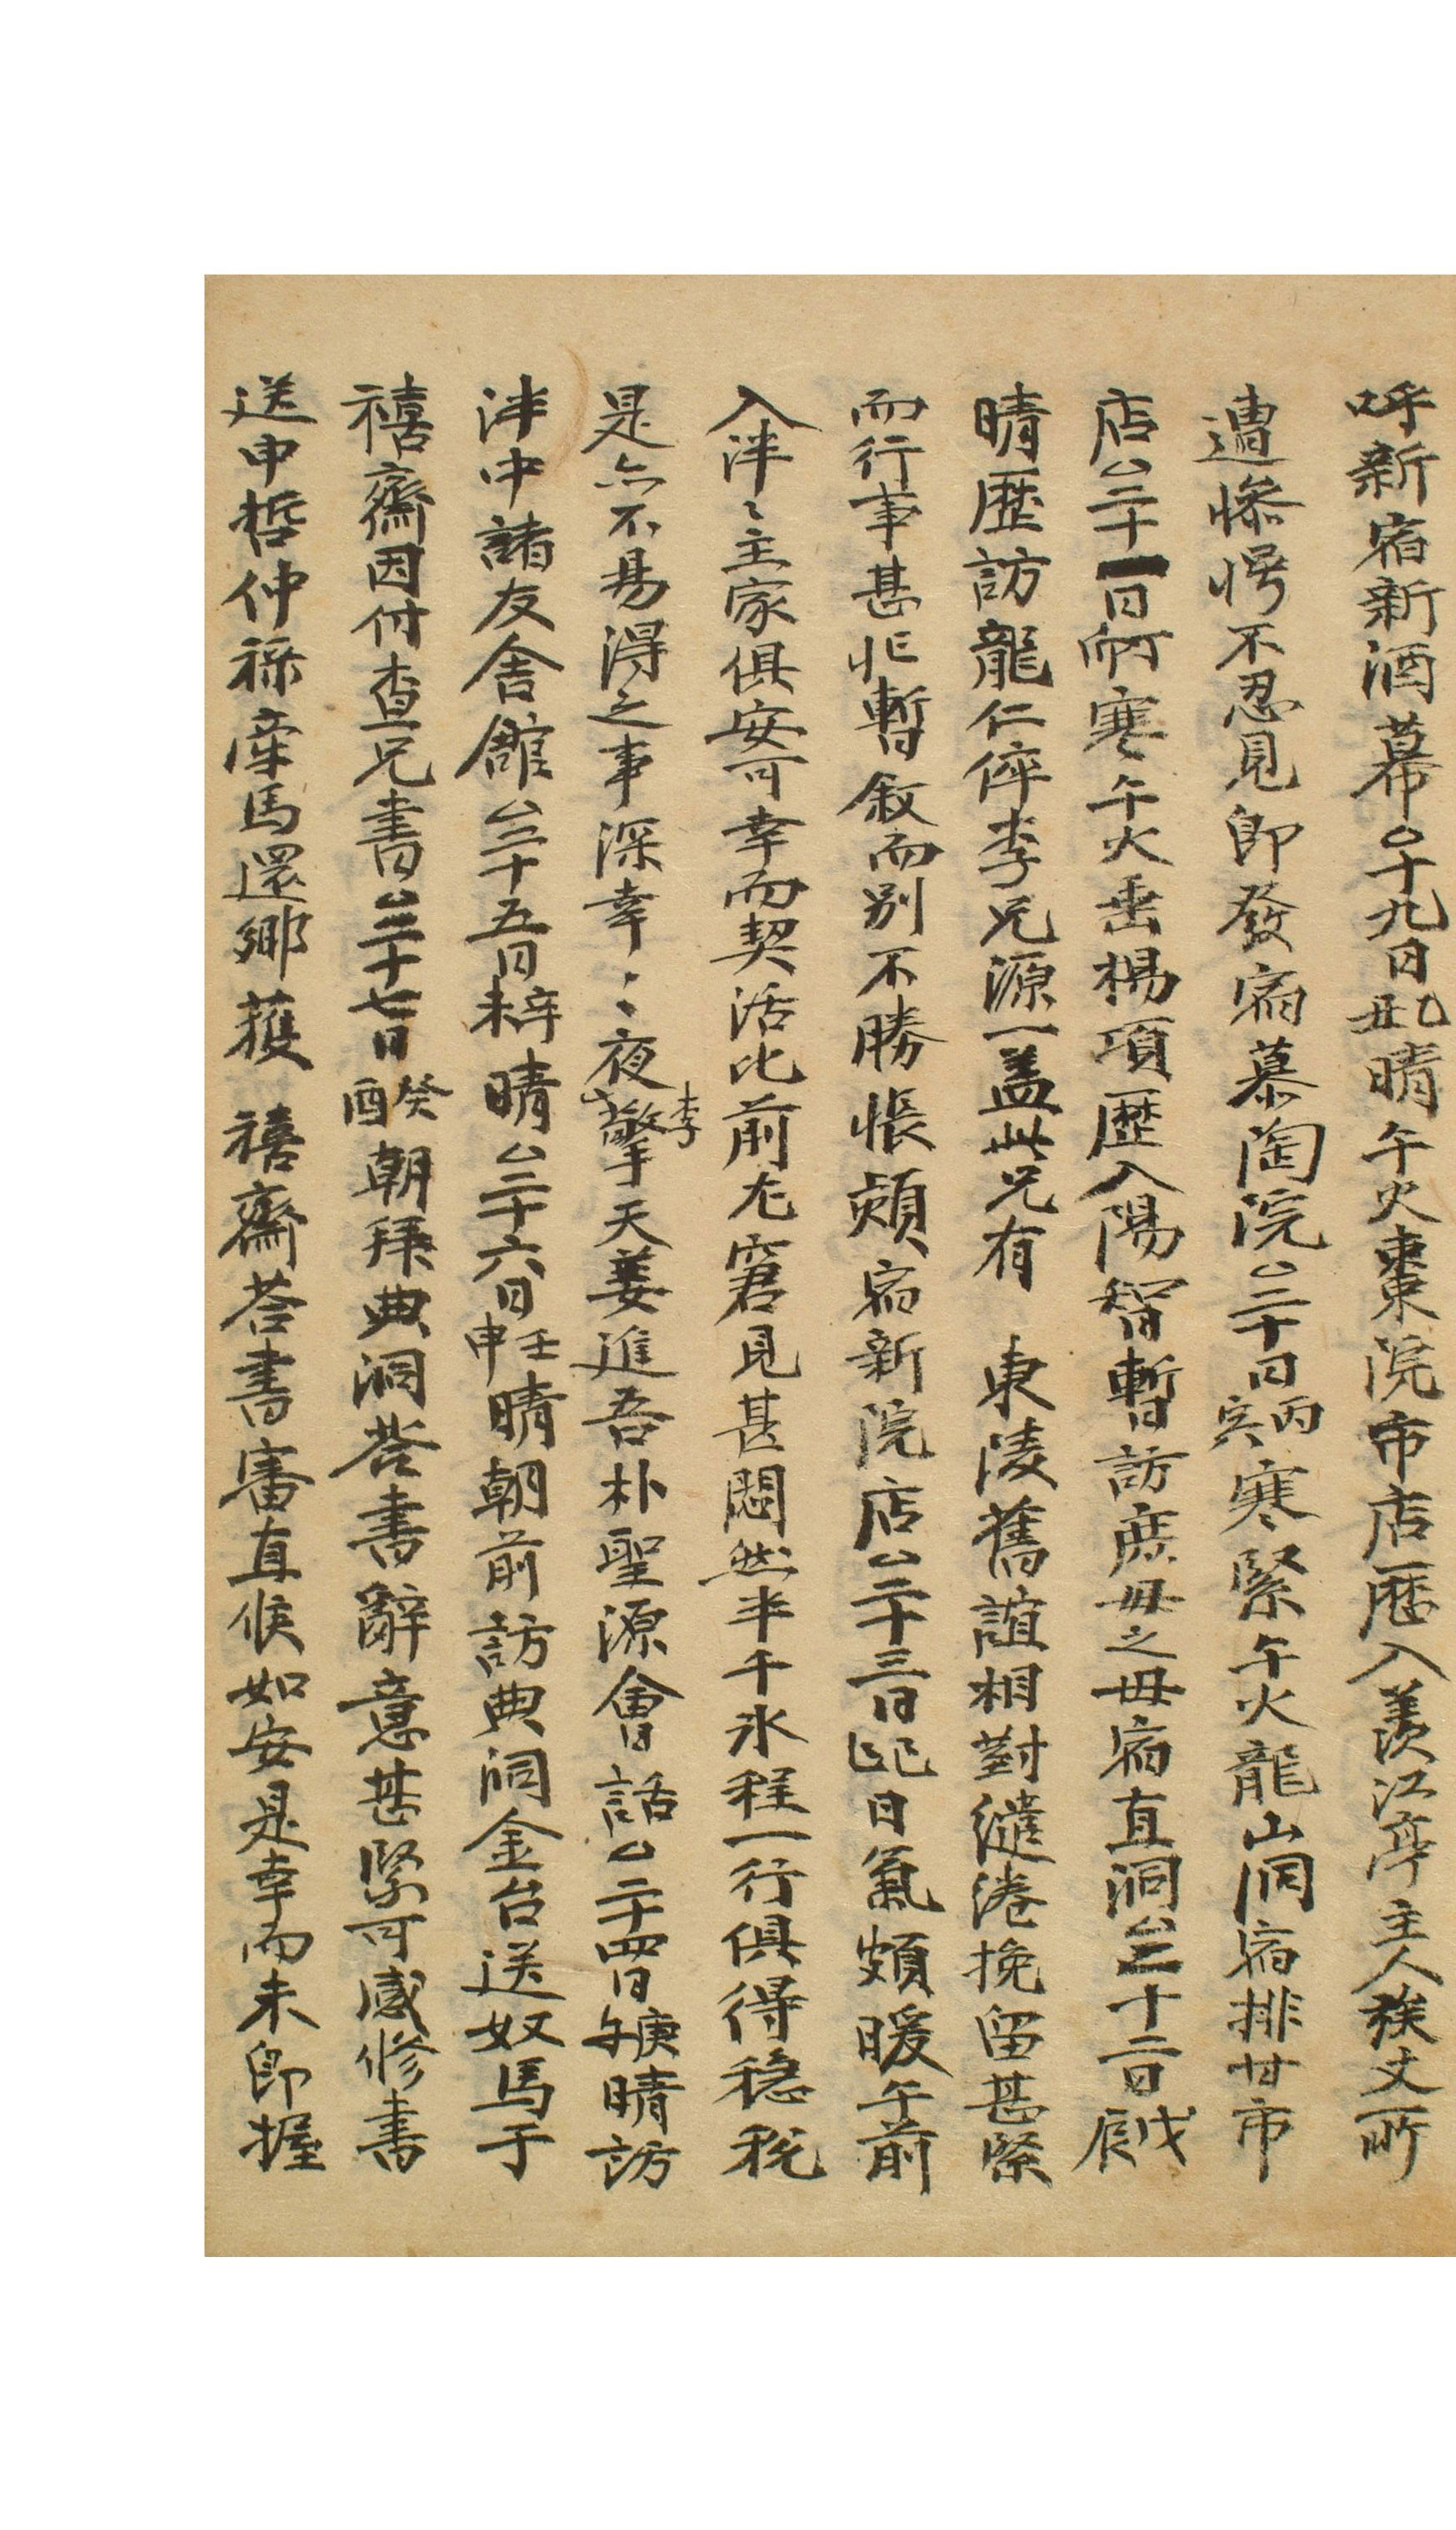 呼新宿新酒幕○十九日乙丑晴午火棗院市店歷入羨江亭主人族丈所
遭慘愕不忍見卽發宿慕陶院○二十日丙寅寒緊午火龍山洞宿排廿市
店○二十一日丁卯寒午火垂楊項歷入陽智暫訪庶母之母宿直洞○二十二日戊辰
晴歷訪龍仁倅李兄源一盖此兄有 東陵舊誼相對繾綣挽留甚緊
而行事甚忙暫敘而別不勝悵㥘宿新院店○二十三日己巳日氣頗暖午前
入泮〻主家俱安可幸而契活比前尤窘見甚悶然半千氷程一行俱得穩稅
是亦不易得之事深幸〻〻夜李擎天姜進吾朴聖源會話○二十四日庚午晴訪
泮中諸友舍館○二十五日辛未晴○二十六日壬申晴朝前訪典洞金台送奴馬于
禧齋因付査兄書○二十七日癸酉朝拜典洞答書辭意甚緊可感修書
送申哲仲祿牽馬還鄕獲 禧齋答書審直候如安是幸而未卽握